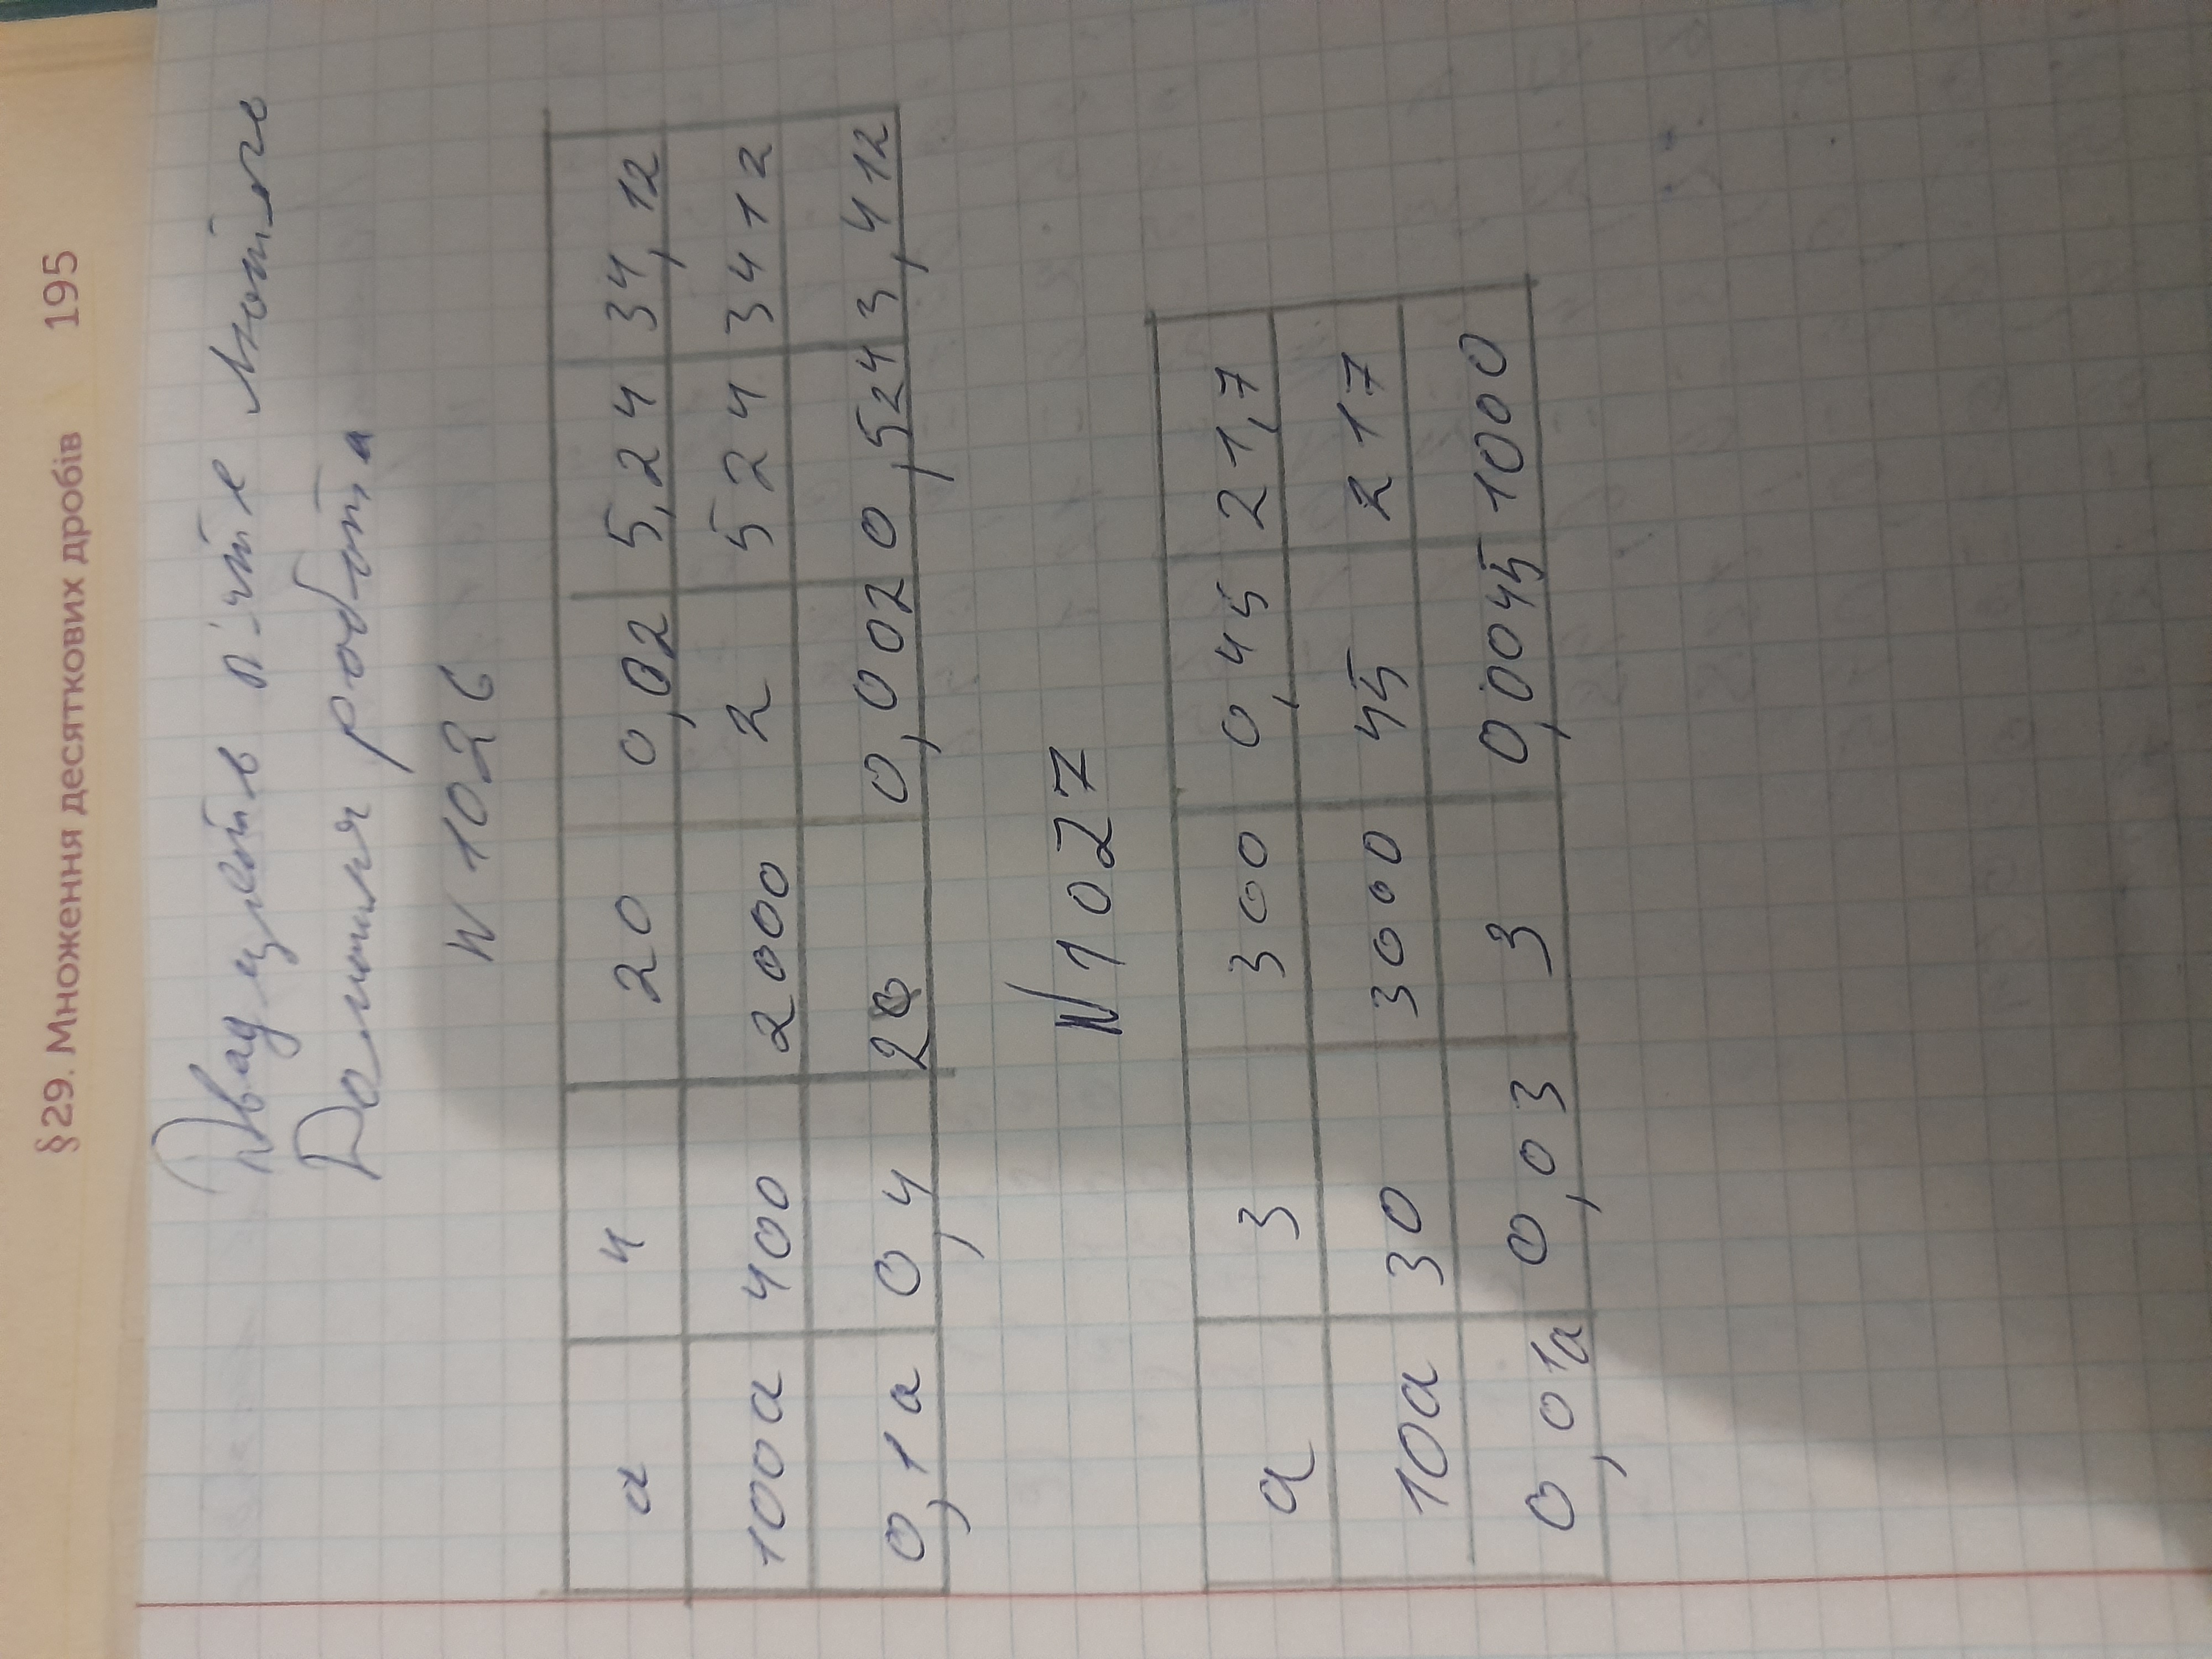 § 29. Множення десяткових дробів 195
Двадцяте п'яте лютого
Домашня робота
N 1026
a 4 20 0,02 5,24 34,12
100a 400 2000 2 524 3412
0,1a 0,4 2 0,002 0,524 3,412
N 1027
a 3 300 0,45 21,7
10a 30 3000 45 217
0,01a 0,03 3 0,0045 1000